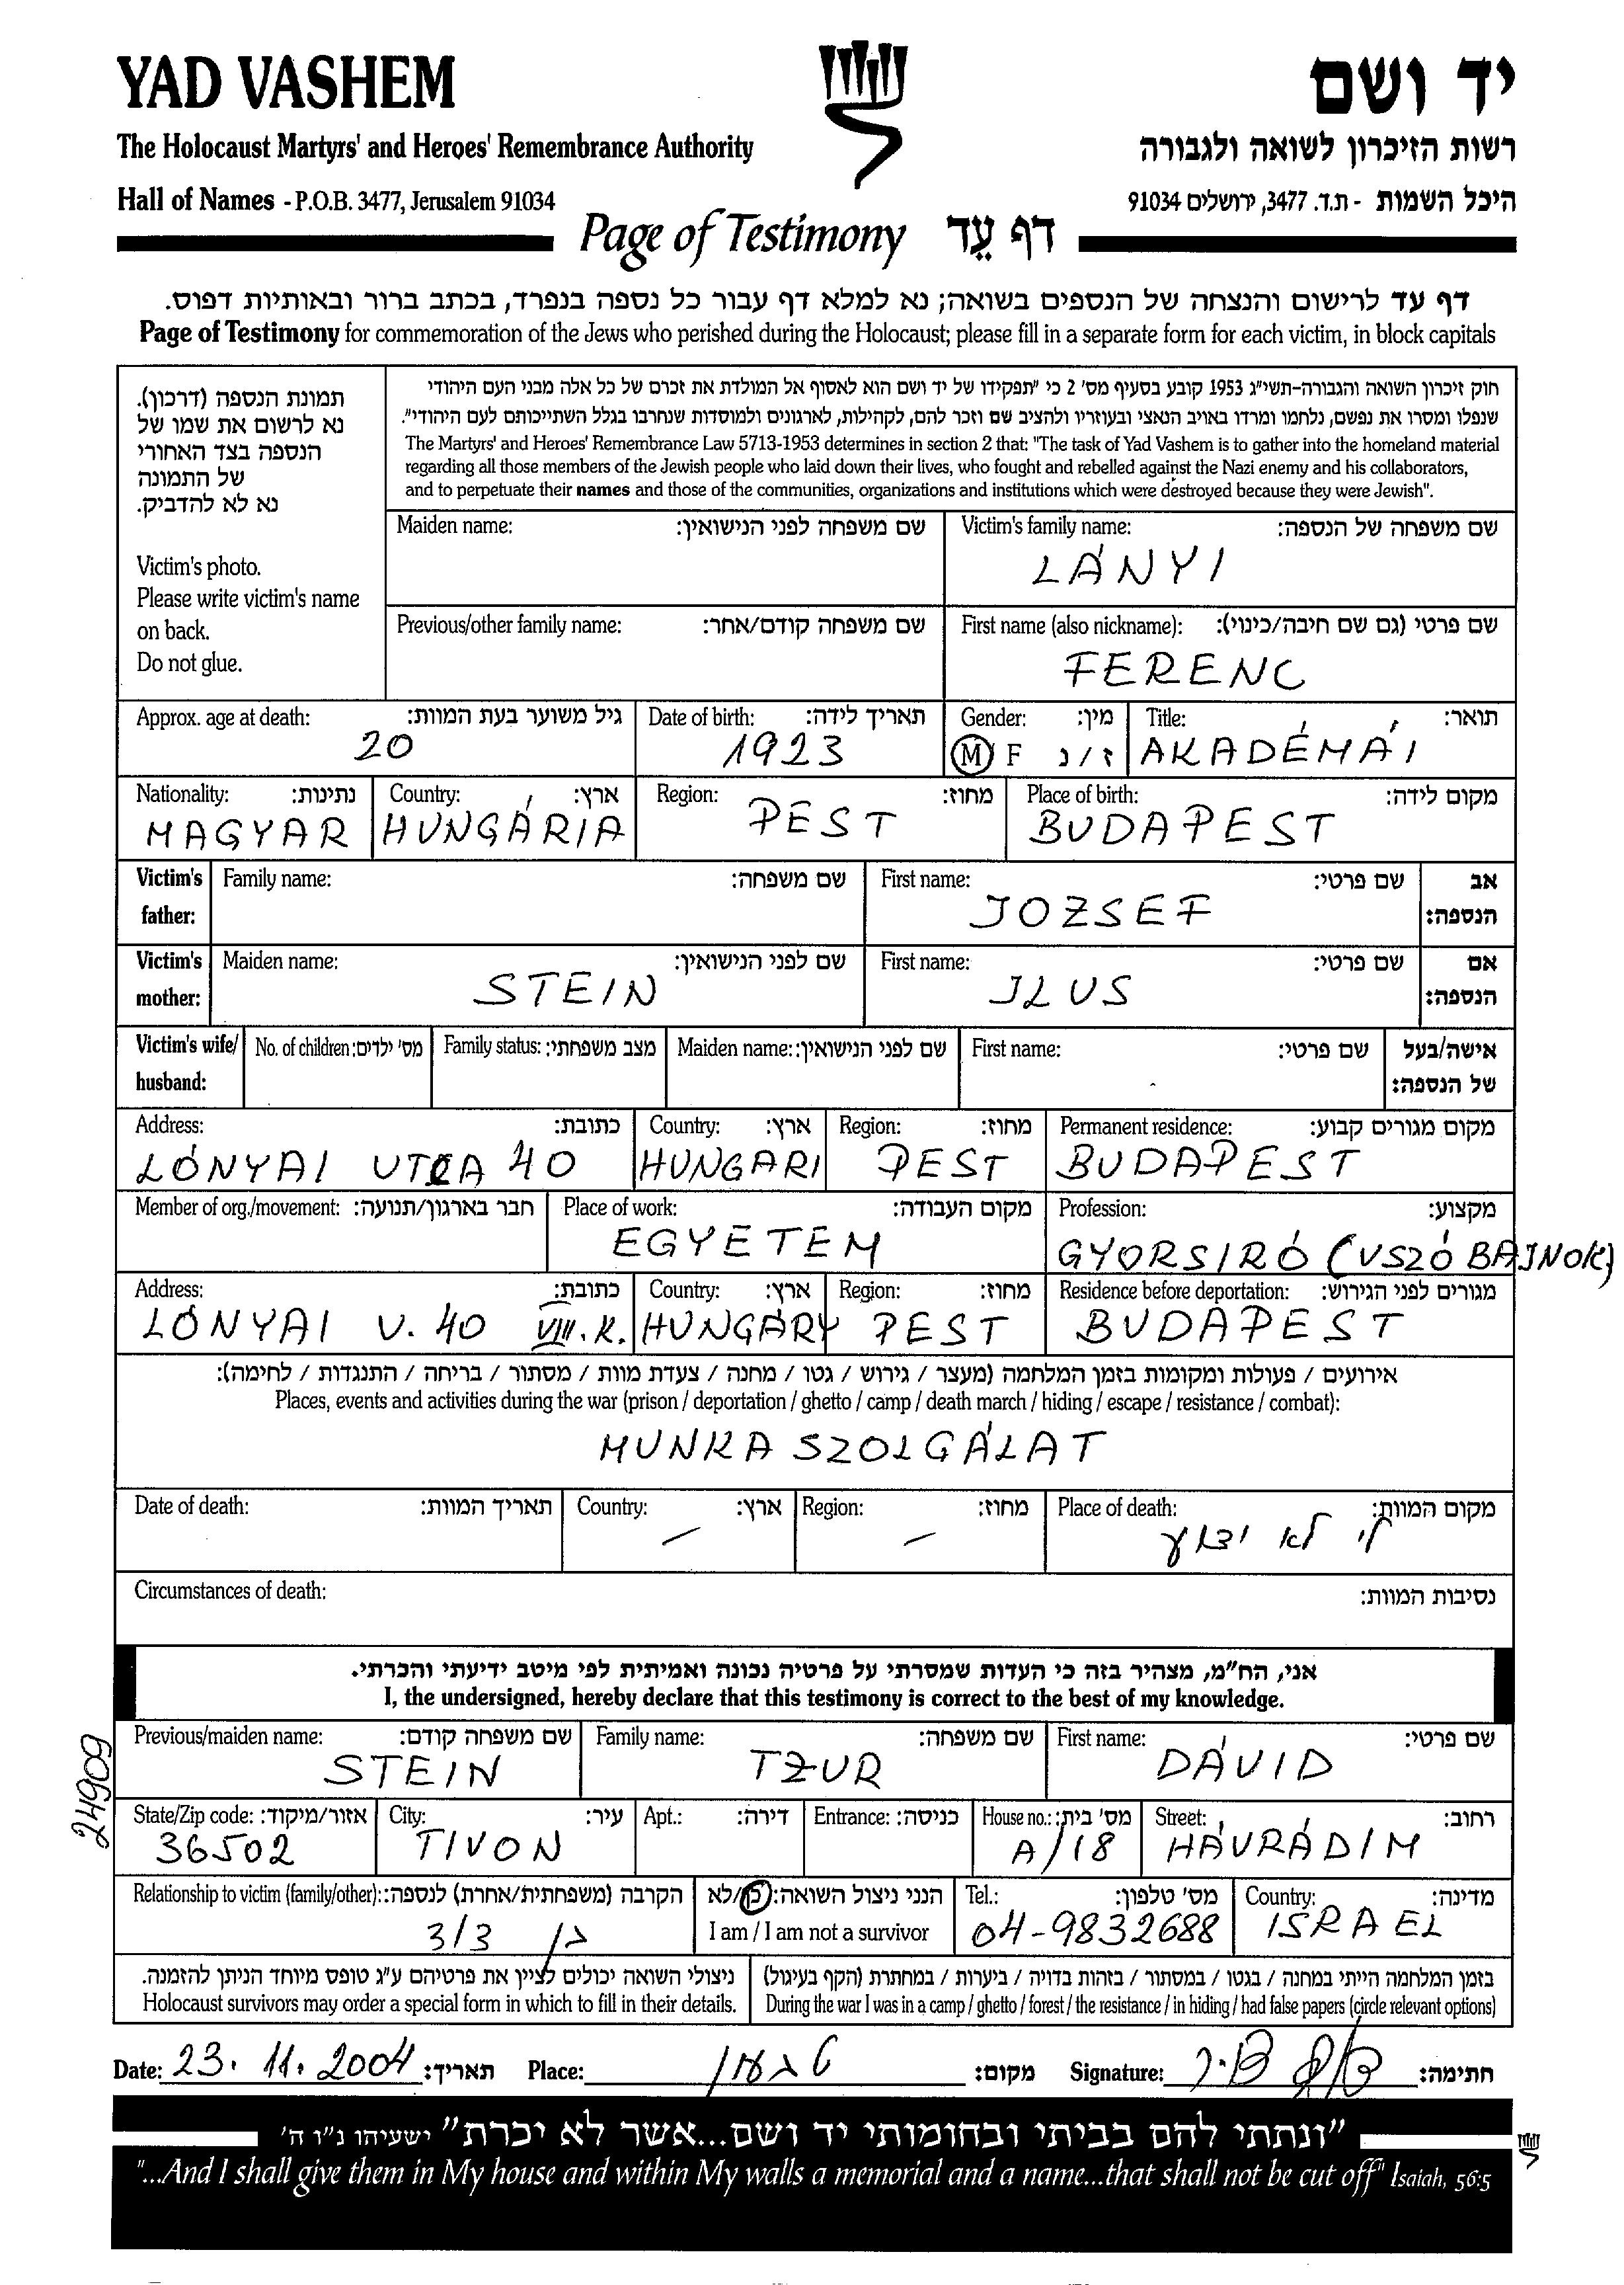 YAD VASHEM
יד ושם
The Holocaust Martyrs' and Heroes' Remembrance Authority
רשות הזיכרון לשואה ולגבורה
Hall of Names - P.O.B. 3477, Jerusalem 91034
היכל השמות - ת.ד. 3477, ירושלים 91034
Page of Testimony דף עֵד
דף עד לרישום והנצחה של הנספים בשואה; נא למלא דף עבור כל נספה בנפרד, בכתב ברור ובאותיות דפוס.
Page of Testimony for commemoration of the Jews who perished during the Holocaust; please fill in a separate form for each victim, in block capitals
תמונת הנספה (דרכון).
נא לרשום את שמו של
הנספה בצד האחורי
של התמונה
נא לא להדביק.
Victim's photo.
Please write victim's name
on back.
Do not glue.
חוק זיכרון השואה והגבורה-תשי"ג 1953 קובע בסעיף מס' 2 כי "תפקידו של יד ושם הוא לאסוף אל המולדת את זכרם של כל אלה מבני העם היהודי
שנפלו ומסרו את נפשם, נלחמו ומרדו באויב הנאצי ובעוזריו ולהציב שם וזכר להם, לקהילות, לארגונים ולמוסדות שנחרבו בגלל השתייכותם לעם היהודי".
The Martyrs' and Heroes' Remembrance Law 5713-1953 determines in section 2 that: "The task of Yad Vashem is to gather into the homeland material
regarding all those members of the Jewish people who laid down their lives, who fought and rebelled against the Nazi enemy and his collaborators,
and to perpetuate their names and those of the communities, organizations and institutions which were destroyed because they were Jewish".
Maiden name: שם משפחה לפני הנישואין:
Victim's family name: שם משפחה של הנספה:
LÁNYI
Previous/other family name: שם משפחה קודם/אחר:
First name (also nickname): שם פרטי (גם שם חיבה/כינוי):
FERENC
Approx. age at death: גיל משוער בעת המוות:
20
Date of birth: תאריך לידה:
1923
Gender: מין:
M F ז/נ
Title: תואר:
AKADÉMÁI
Nationality: נתינות:
MAGYAR
Country: ארץ:
HUNGÁRIA
Region: מחוז:
PEST
Place of birth: מקום לידה:
BUDAPEST
Victim's father:
Family name: שם משפחה:
First name: שם פרטי:
JOZSEF
אב הנספה:
Victim's mother:
Maiden name: שם לפני הנישואין:
STEIN
First name: שם פרטי:
JLUS
אם הנספה:
Victim's wife/ husband:
No. of children: מס' ילדים:
Family status: מצב משפחתי:
Maiden name: שם לפני הנישואין:
First name: שם פרטי:
אישה/בעל של הנספה:
Address: כתובת:
LÓNYAI UTCA 40
Country: ארץ:
HUNGARI
Region: מחוז:
PEST
Permanent residence: מקום מגורים קבוע:
BUDAPEST
Member of org./movement: חבר בארגון/תנועה:
Place of work: מקום העבודה:
EGYETEM
Profession: מקצוע:
GYORSIRÓ (USZÓ BAJNOK)
Address: כתובת:
LÓNYAI U. 40 VIII. K.
Country: ארץ:
HUNGÁRY
Region: מחוז:
PEST
Residence before deportation: מגורים לפני הגירוש:
BUDAPEST
אירועים / פעולות ומקומות בזמן המלחמה (מעצר / גירוש / גטו / מחנה / צעדת מוות / מסתור / בריחה / התנגדות / לחימה):
Places, events and activities during the war (prison / deportation / ghetto / camp / death march / hiding / escape / resistance / combat):
MUNKA SZOLGÁLAT
Date of death: תאריך המוות:
Country: ארץ:
Region: מחוז:
Place of death: מקום המוות:
לי לא ידוע
Circumstances of death: נסיבות המוות:
אני, הח"מ, מצהיר בזה כי העדות שמסרתי על פרטיה נכונה ואמיתית לפי מיטב ידיעתי והכרתי.
I, the undersigned, hereby declare that this testimony is correct to the best of my knowledge.
24909
Previous/maiden name: שם משפחה קודם:
STEIN
Family name: שם משפחה:
TZUR
First name: שם פרטי:
DÁVID
State/Zip code: אזור/מיקוד:
36502
City: עיר:
TIVON
Apt.: דירה:
Entrance: כניסה:
House no.: מס' בית:
A/18
Street: רחוב:
HÁVRÁDIM
Relationship to victim (family/other): הקרבה (משפחתית/אחרת) לנספה:
בן דוד
הנני ניצול השואה: כן/לא
I am / I am not a survivor
Tel.: מס' טלפון:
04-9832688
Country: מדינה:
ISRAEL
ניצולי השואה יכולים לציין את פרטיהם ע"ג טופס מיוחד הניתן להזמנה.
Holocaust survivors may order a special form in which to fill in their details.
בזמן המלחמה הייתי במחנה / בגטו / במסתור / בזהות בדויה / ביערות / במחתרת (הקף בעיגול)
During the war I was in a camp / ghetto / forest / the resistance / in hiding / had false papers (circle relevant options)
Date: 23.11.2004 תאריך: Place: טבעון מקום: Signature: חתימה:
"ונתתי להם בביתי ובחומותי יד ושם...אשר לא יכרת" ישעיהו נ"ו ה'
"...And I shall give them in My house and within My walls a memorial and a name...that shall not be cut off" Isaiah, 56:5